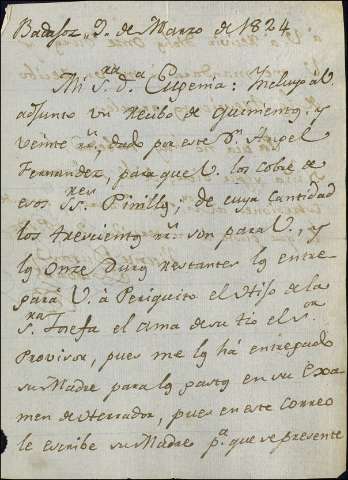 Badajoz 9. de Marzo de 1824
Mi S.ra d.a Eugenia: Incluyo a V.
adjunto un Recibo de quinientos y
veinte r.s, dado por este D.n Angel
Fernandez, para que V. los cobre de
esos S.res Pinillos, de cuya cantidad
los trescientos r.s son para V., y
los Onze Duros restantes los entre-
gará V. à Periquito el Hijo de la
S.ra Josefa el Ama de su tio el S.or
Provisor, pues me los há entregado
su Madre para los gastos en su Exa-
men de Herrador, pues en este Correo
le escribe su Madre p.a que se presente